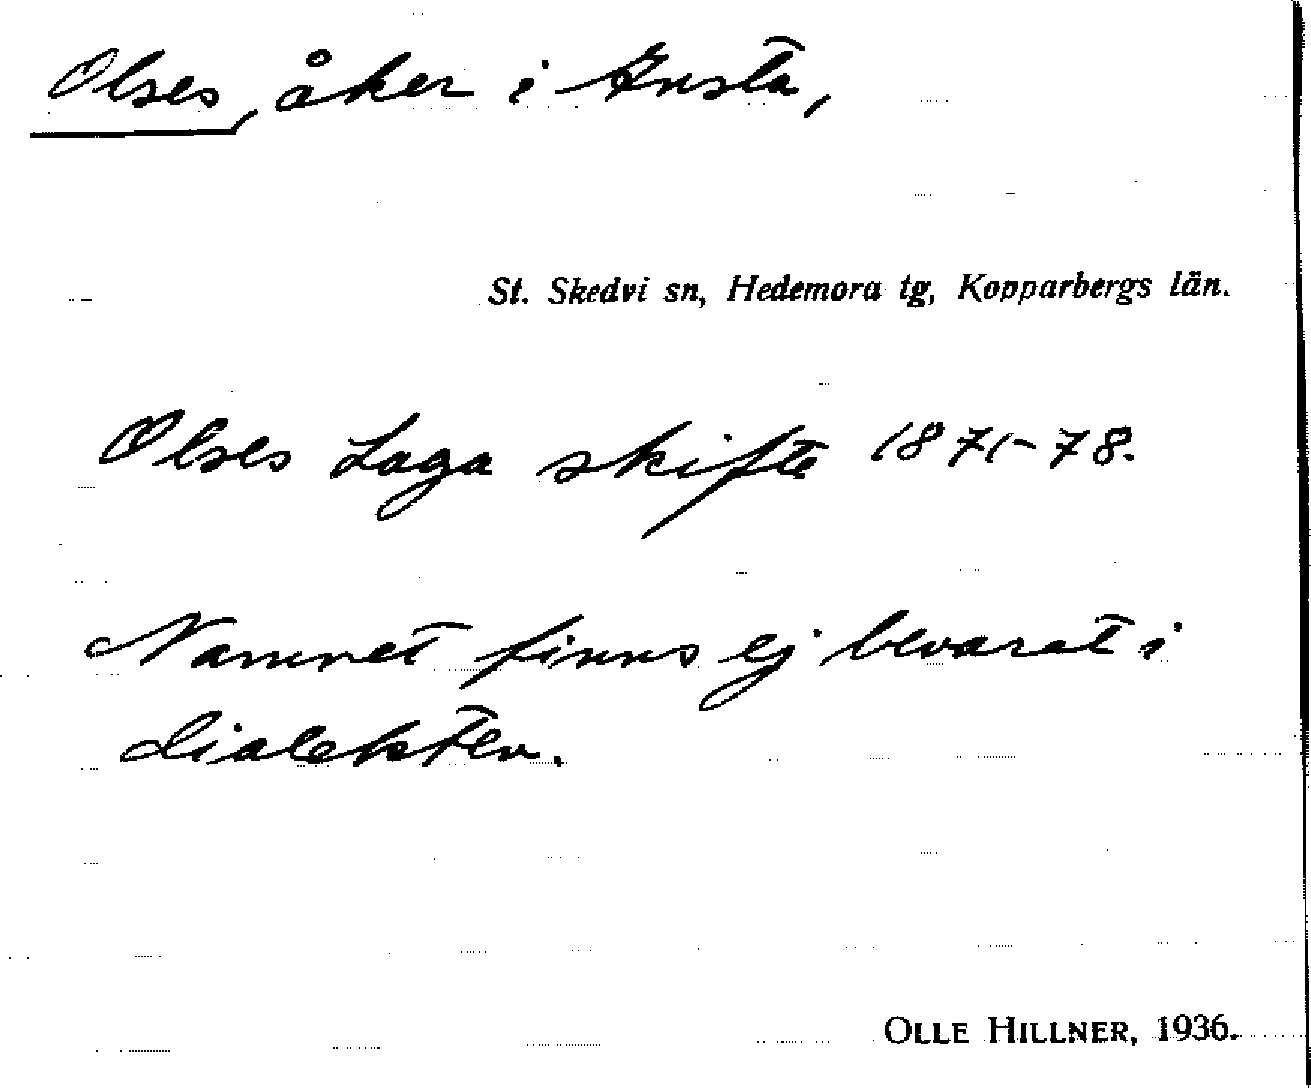 Olses, åker i Gusta,
St. Skedvi sn, Hedemora tg, Kopparbergs län.
Olses Laga skifte 1871-78.
Namnet finns ej bevarat i
dialekten.
OLLE HILLNER, 1936.